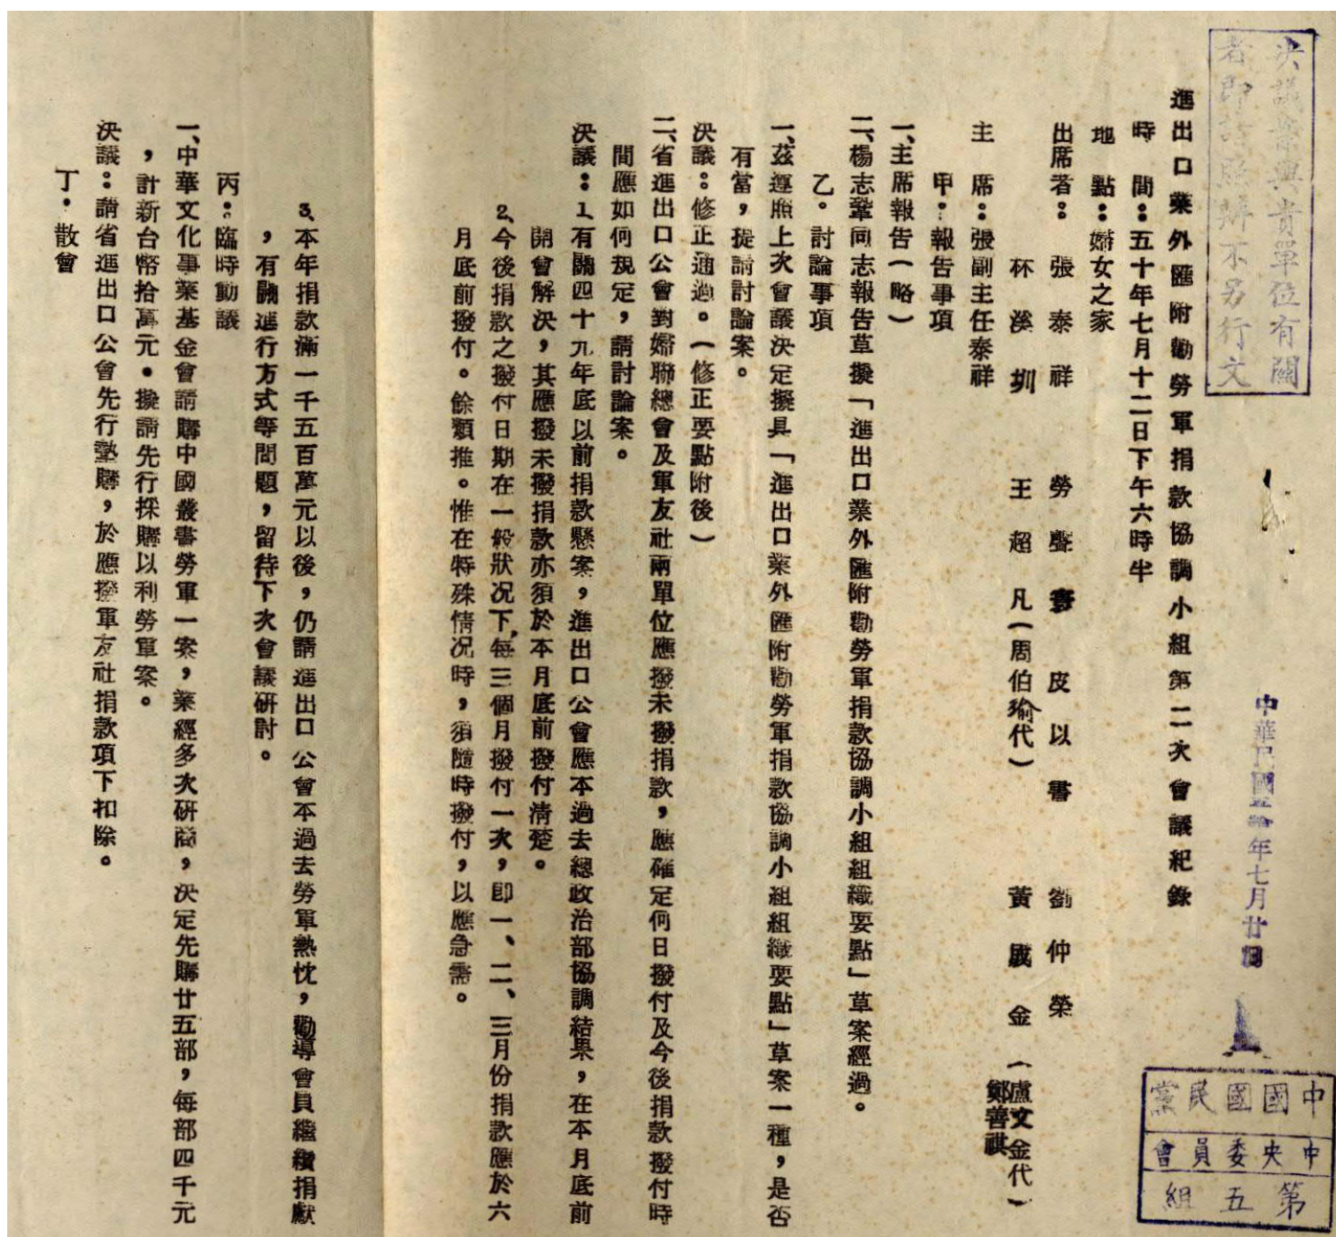 決議案與貴單位有關
者即請照辦不另行文
進出口業外匯附勸勞軍捐款協調小組第二次會議紀錄
時　間：五十年七月十二日下午六時半
地　點：婦女之家
出席者：張泰祥　勞聲寰　皮以書　劉仲榮
林溪圳　王超凡（周伯瑜代）　黃晟金（盧文金代）
鄭善祺
主　席：張副主任泰祥
甲．報告事項
一、主席報告（略）
二、楊志鞏同志報告草擬「進出口業外匯附勸勞軍捐款協調小組組織要點」草案經過。
乙．討論事項
一、茲遵照上次會議決定擬具「進出口業外匯附勸勞軍捐款協調小組組織要點」草案一種，是否
有當，提請討論案。
決議：修正通過。（修正要點附後）
二、省進出口公會對婦聯總會及軍友社兩單位應撥未撥捐款，應確定何日撥付及今後捐款撥付時
間應如何規定，請討論案。
決議：1.有關四十九年底以前捐款懸案，進出口公會應本過去總政治部協調結果，在本月底前
開會解決，其應撥未撥捐款亦須於本月底前撥付清楚。
2.今後捐款之撥付日期在一般狀況下，每三個月撥付一次，即一、二、三月份捐款應於六
月底前撥付。餘類推。惟在特殊情況時，須隨時撥付，以應急需。
3.本年捐款滿一千五百萬元以後，仍請進出口公會本過去勞軍熱忱，勸導會員繼續捐獻
，有關進行方式等問題，留待下次會議研討。
丙．臨時動議
一、中華文化事業基金會請購中國叢書勞軍一案，業經多次研商，決定先購廿五部，每部四千元
，計新台幣拾萬元。擬請先行採購以利勞軍案。
決議：請省進出口公會先行墊購，於應撥軍友社捐款項下扣除。
丁．散會
中華民國五十年七月廿日
中國國民黨
中央委員會
第五組